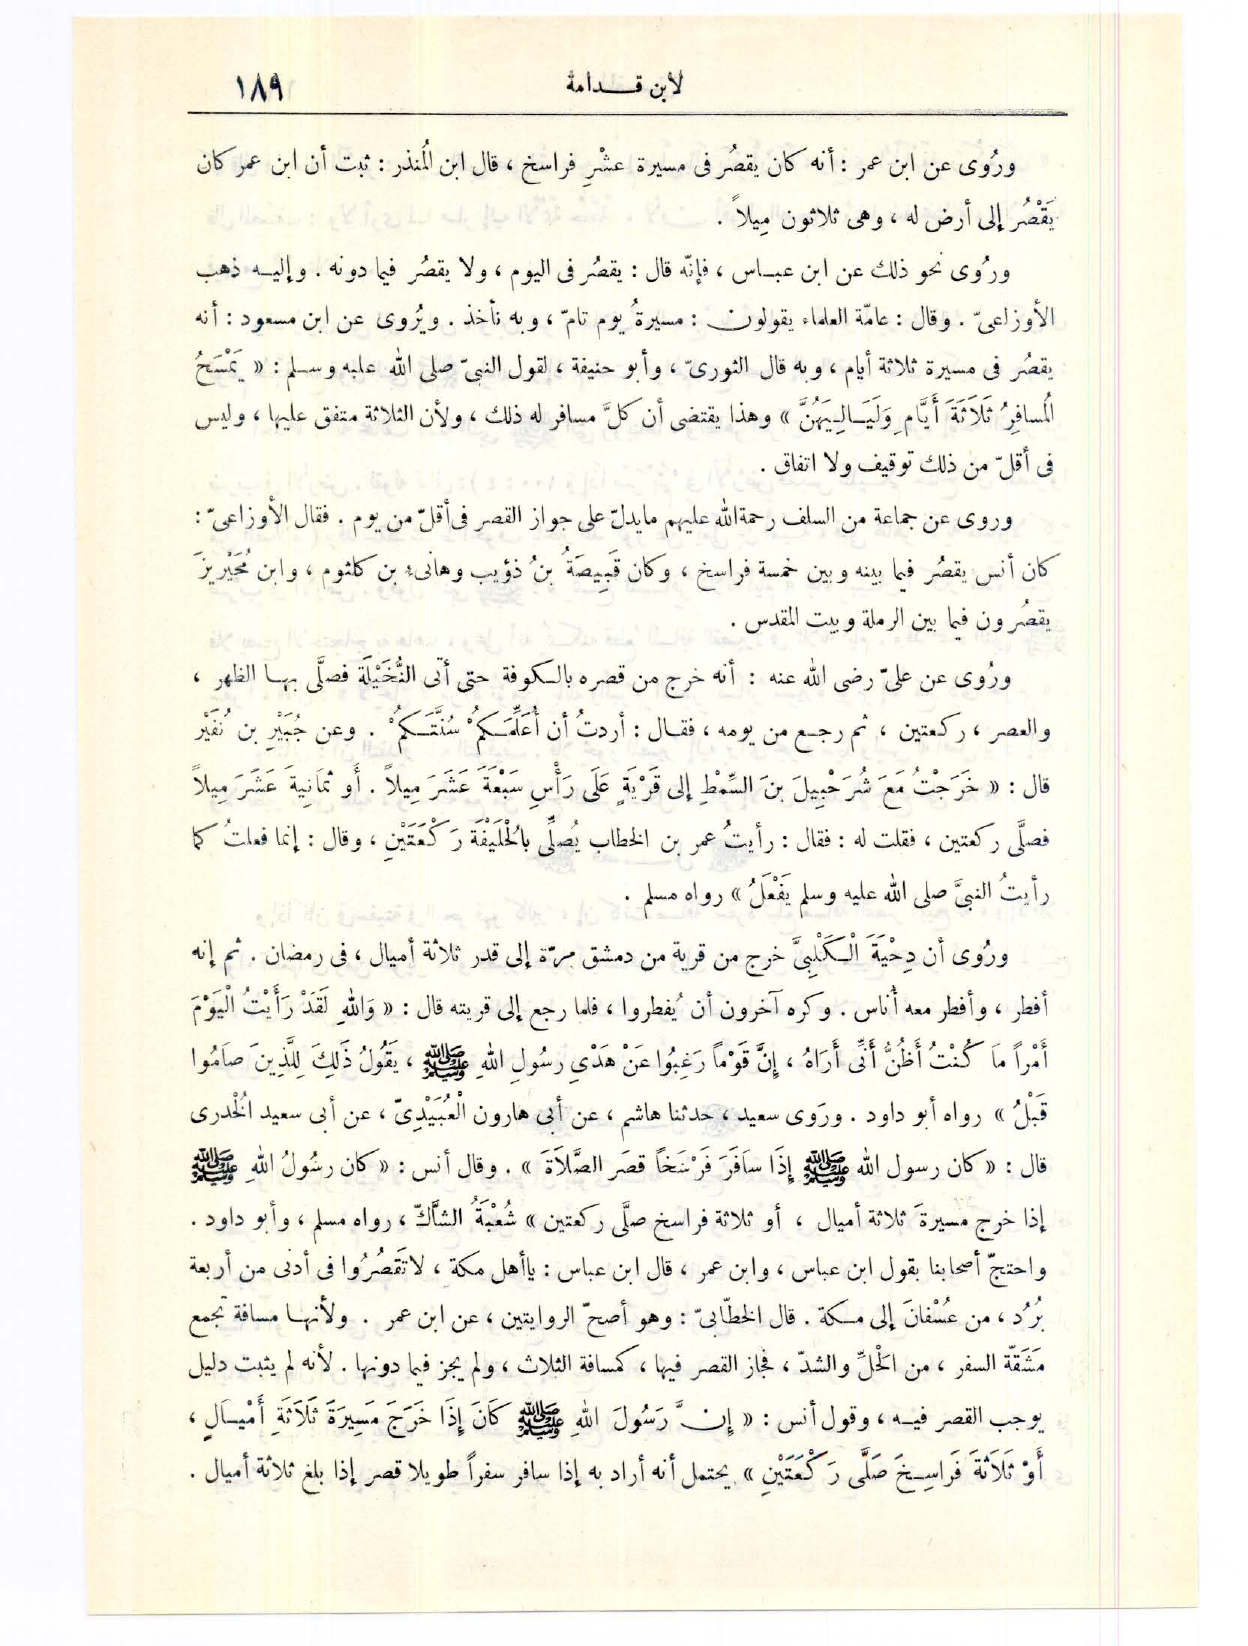 لابن قـــدامة
١٨٩
ورُوى عن ابن عمر : أنه كان يقصُر فى مسيرة عشْرِ فراسخ ، قال ابن المُنذر : ثبت أن ابن عمر كان
يَقْصُر إلى أرض له ، وهى ثلاثون مِيلاً .
ورُوى نحو ذلك عن ابن عبـاس ، فإنّه قال : يقصُر فى اليوم ، ولا يقصُر فيما دونه . وإليـه ذهب
الأوزاعىّ . وقال : عامّة العلماء يقولون : مسيرةُ يوم تامّ ، وبه نأخذ . ويُروى عن ابن مسعود : أنه
يقصُر فى مسيرة ثلاثة أيام ، وبه قال الثورىّ ، وأبو حنيفة ، لقول النبىّ صلى الله عليه وسلم : « يَمْسَحُ
المُسافِرُ ثَلَاثَةَ أَيَّامٍ وَلَيَـالِـيَهُنَّ » وهذا يقتضى أن كلَّ مسافر له ذلك ، ولأن الثلاثة متفق عليها ، وليس
فى أقلّ من ذلك توقيف ولا اتفاق .
وروى عن جماعة من السلف رحمةالله عليهم مايدلّ على جواز القصر فى أقلّ من يوم . فقال الأوزاعىّ :
كان أنس يقصُر فيما بينه وبين خمسة فراسخ ، وكان قَبِيصَةُ بنُ ذؤيب وهانىء بن كلثوم ، وابن مُحَيْريزَ
يقصُرون فيما بين الرملة وبيت المقدس .
ورُوى عن علىّ رضى الله عنه : أنه خرج من قصره بالـكوفة حتى أتى النُّخَيْلَة فصلَّى بهـا الظهر ،
والعصر ، ركعتين ، ثم رجـع من يومه ، فقـال : أردتُ أن أُعَلِّمَـكمُ سُنَّتَـكمُ . وعن جُبَيْرِ بن نُفَيْر
قال : « خَرَجْتُ مَعَ شُرَحْبِيلَ بنَ السِّمْطِ إلى قَرْيَةٍ عَلَى رَأْسِ سَبْعَةَ عَشَرَ مِيلاً . أَو ثمَانِيةَ عَشَرَ مِيلاً
فصلَّى ركعتين ، فقلت له : فقال : رأيتُ عمر بن الخطاب يُصلِّى بالْحُلَيْفَة رَكْعَتَيْنِ ، وقال : إنما فعلتُ كما
رأيتُ النبىَّ صلى الله عليه وسلم يَفْعَلُ » رواه مسلم .
ورُوى أن دِحْيَةَ الْـكَلْبِىَّ خرج من قرية من دمشق مرّة إلى قدر ثلاثة أميال ، فى رمضان . ثم إنه
أفطر ، وأفطر معه أُناس . وكره آخرون أن يُفطروا ، فلما رجع إلى قريته قال : « وَاللهِ لَقَدْ رَأَيْتُ الْيَوْمَ
أَمْراً مَا كُنْتُ أَظُنُّ أَنِّى أَرَاهُ ، إِنَّ قَوْمًا رَغِبُوا عَنْ هَدْيِ رسُولِ اللهِ ﷺ ، يَقُولُ ذَلِكَ لِلَّذِينَ صَامُوا
قَبْلُ » رواه أبو داود . ورَوى سعيد ، حدثنا هاشم ، عن أبى هارون الْعُبَيْدِىّ ، عن أبى سعيد الْخُدرى
قال : « كان رسول الله ﷺ إِذَا سَافَرَ فَرْسَخاً قصَر الصَّلاَةَ » . وقال أنس : « كان رسُولُ اللهِ ﷺ
إذا خرج مسيرةَ ثلاثة أميال ، أو ثلاثة فراسخ صلَّى ركعتين » شُعْبَةُ الشَّاكّ ، رواه مسلم ، وأبو داود .
واحتجّ أصحابنا بقول ابن عباس ، وابن عمر ، قال ابن عباس : ياأهل مكة ، لاتَقصُرُوا فى أدنى من أربعة
بُرُد ، من عُسْفانَ إلى مـكة . قال الخطّابىّ : وهو أصحّ الروايتين ، عن ابن عمر . ولأنهـا مسافة تجمع
مَشَقّة السفر ، من الْحَلِّ والشدّ ، فجاز القصر فيها ، كمسافة الثلاث ، ولم يجز فيما دونها . لأنه لم يثبت دليل
يوجب القصر فيـه ، وقول أنس : « إِنَّ رَسُولَ اللهِ ﷺ كَانَ إِذَا خَرَجَ مَسِيرَةَ ثَلَاثَةِ أَمْيَـالٍ ،
أَوْ ثَلَاثَةَ فَرَاسِـخَ صَلَّى رَكْعَتَيْنِ » يحتمل أنه أراد به إذا سافر سفراً طويلا قصر إذا بلغ ثلاثة أميال .